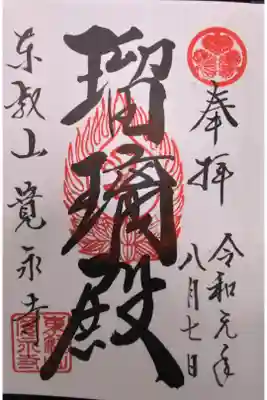 奉拝
令和元年
八月七日
瑠璃殿
東叡山 寛永寺